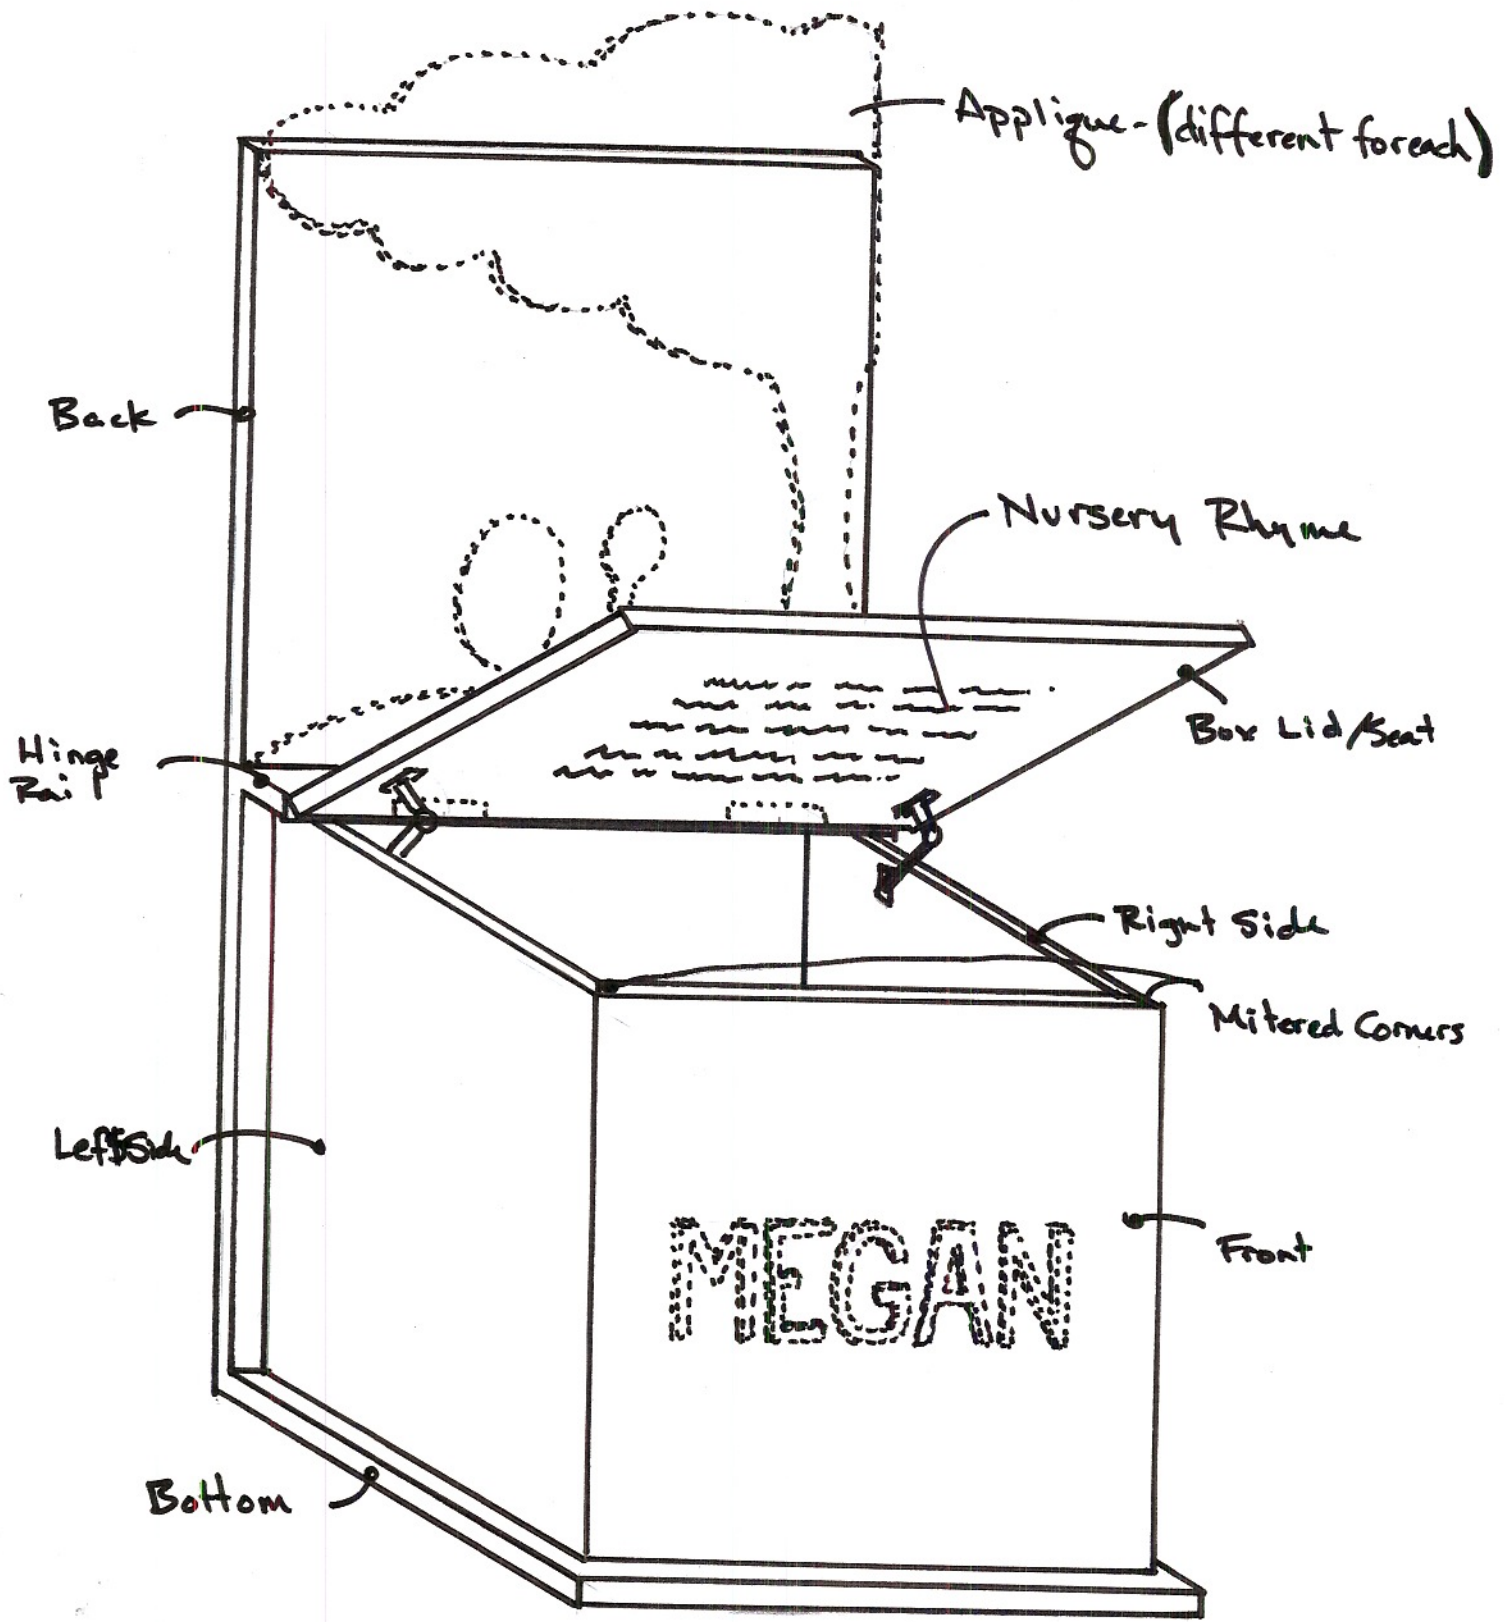 Applique - (different for each)
Back
Nursery Rhyme
Box Lid/Seat
Hinge
Rail
Right Side
Mitered Corners
Left Side
MEGAN
Front
Bottom